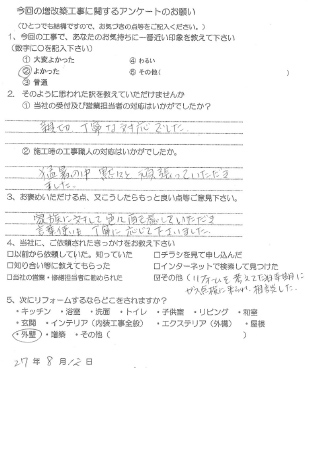 今回の増改築工事に関するアンケートのお願い
(ひとつでも結構ですので、お気づきの点等をご記入ください。)
1、今回の工事で、あなたのお気持ちに一番近い印象を教えて下さい
(数字に○を記入下さい)
① 大変よかった ④ わるい
② よかった ⑤ その他( )
③ 普通
2、そのように思われた訳を教えていただけませんか
① 当社の受付及び営業担当者の対応はいかがでしたか?
親切、丁寧な対応でした。
② 施工時の工事職人の対応はいかがでしたか。
猛暑の中 黙々と頑張っていただき
ました。
3、お褒めいただける点、又こうしたらもっと良い点等ご意見下さい。
家族に対しても
言葉使いも丁寧に 応じて下さいました。
4、当社に、ご依頼されたきっかけをお教え下さい
□以前から依頼していた。知っていた □チラシを見て申し込んだ
□知り合い等に教えてもらった □インターネットで検索して見つけた
□当社の営業・修繕担当者に勧められた ☑その他(リフォームを考えてた時
相談した。
5、次にリフォームするならどこをされますか?
・キッチン ・浴室 ・洗面 ・トイレ ・子供室 ・リビング ・和室
・玄関 ・インテリア(内装工事全般) ・エクステリア(外構) ・屋根
・外壁 ・増築 ・その他( )
27年 8月12日